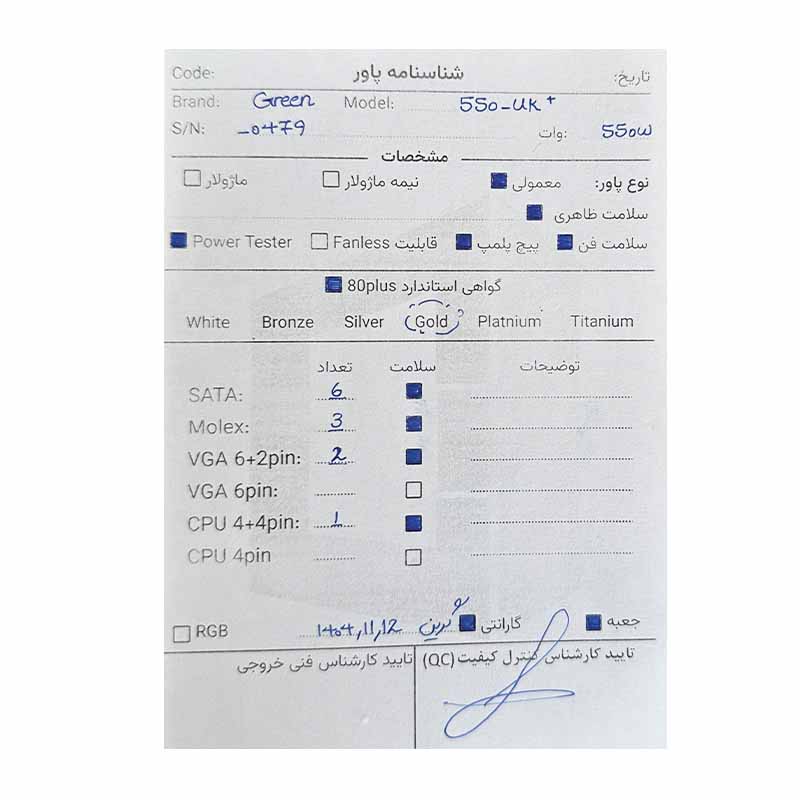 Code: شناسنامه پاور تاریخ:
Brand: Green Model: 550-UK+
S/N: _0479 وات: 550W
مشخصات
نوع پاور: معمولی نیمه ماژولار ماژولار
سلامت ظاهری
سلامت فن پیچ پلمپ قابلیت Fanless Power Tester
گواهی استاندارد 80plus
White Bronze Silver Gold Platnium Titanium
تعداد سلامت توضیحات
SATA: 6
Molex: 3
VGA 6+2pin: 2
VGA 6pin:
CPU 4+4pin: 1
CPU 4pin
جعبه گارانتی گرین 1404,11,12 RGB
تایید کارشناس کنترل کیفیت (QC) تایید کارشناس فنی خروجی